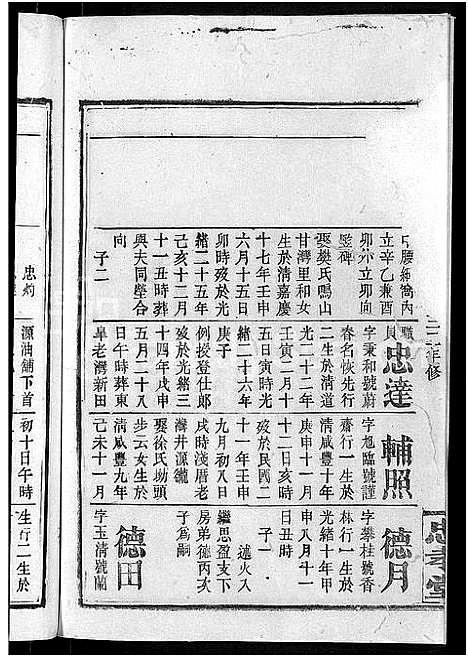 立辛乙兼酉
卯外立卯向
豎碑
娶樊氏鳴山
甘灣里和女
生於清嘉慶
十七年壬申
六月十五日
卯時歿於光
緒二十五年
己亥十二月
十一五時葬
與夫同塋合
向
子二
忠達
字秉和號蔚
春名恢先行
二生於清道
光二十二年
壬寅二月十
五日寅時光
緒二十六年
庚子
例授登仕郎
歿於光緒三
十四年戊申
五月二十八
日午時葬東
阜老灣新田
輔照
字旭臨號謹
齋行一生於
清咸豐十年
庚申十一月
十二日亥時
歿於民國二
十一年壬申
九月初八日
戌時淺厝老
灣井源瓏
娶徐氏坳頭
步云女生於
清咸豐九年
己未十一月
德月
字攀桂號香
林行一生於
光緒十年甲
申八月十一
日丑時
子一
述火入
繼思盈支下
房弟德丙次
子為嗣
德田
字玉清號蘭
忠孝堂
年修
忠灼
源油舖下首
初十日午時
生行二生於